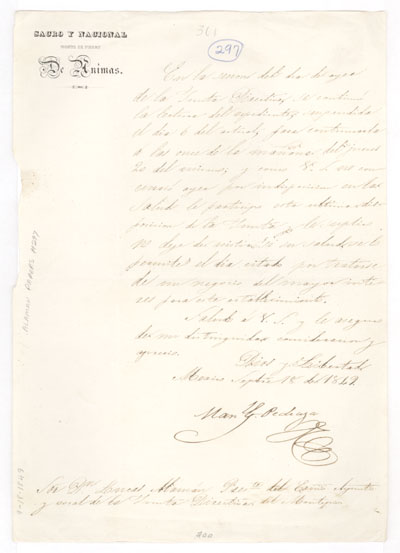 361
297
SACRO Y NACIONAL
MONTE DE PIEDAD
De Animas.
En la sesion del dia de ayer
de la Junta Directiva, se continuó
la lectura del espediente, suspendida
el dia 6 del actual; para continuarla
a las once de la mañana del jueves
20 del mismo; y como V. S. no con-
currió ayer por indisposicion en la
salud le participo esta ultima dis-
posicion de la Junta y le suplico
no deje de asistir si su salud se lo
permite el dia citado por tratarse
de un negocio del mayor inte-
res para este establecimiento.
Salud a V. S. y le aseguro
de mi distinguida consideracion y
aprecio.
Dios y Libertad
Mexico Septre. 18 de 1849
Man G Pedraza
Sor Dn. Lucas Alaman Preste. del Exmo Ayunto
y vocal de la Junta Directiva del Montepio
ALAMAN PAPERS #297
9-18-1849
200